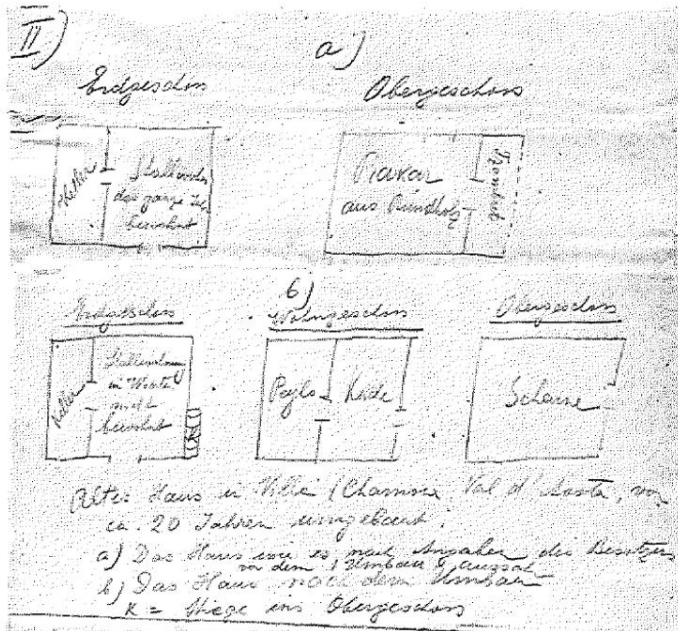 II)
a)
Erdgeschoss
Obergeschoss
Keller
Stall
das ganze
bewohnt
Piavar
aus Rundholz
b)
Erdgeschoss
Wohngeschoss
Obergeschoss
Keller
in Winter
bewohnt
K
Peylo
Scheune
Altes Haus in Villa (Chamois, Val d'Aosta, vor
ca. 20 Jahren umgebaut.
a) Das Haus wie es nach Angaben des Besitzers
vor dem Umbau aussah
b) Das Haus nach dem Umbau
K = Stiege ins Obergeschoss